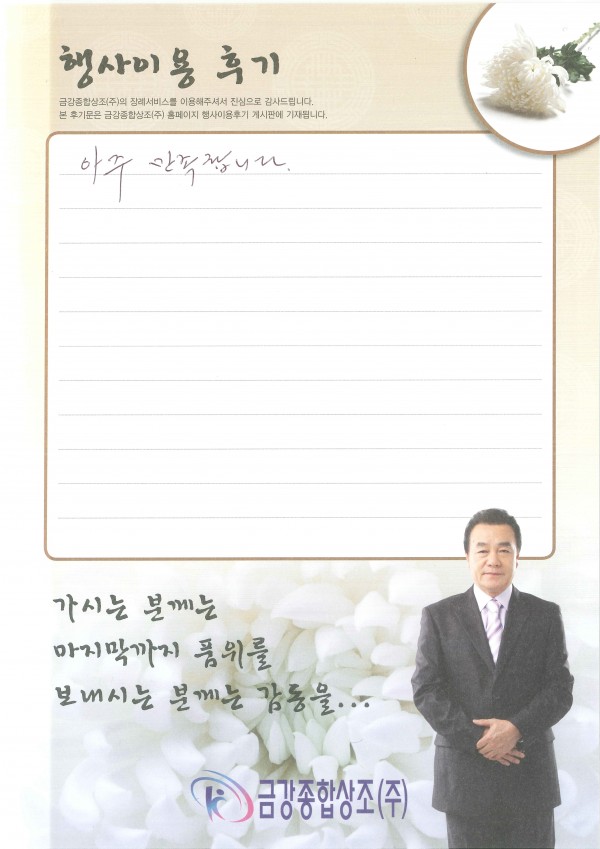 행사이용 후기
금강종합상조(주)의 장례서비스를 이용해주셔서 진심으로 감사드립니다.
본 후기문은 금강종합상조(주) 홈페이지 행사이용후기 게시판에 기재됩니다.
아주 만족합니다.
가시는 분께는
마지막까지 품위를
보내시는 분께는 감동을...
금강종합상조(주)